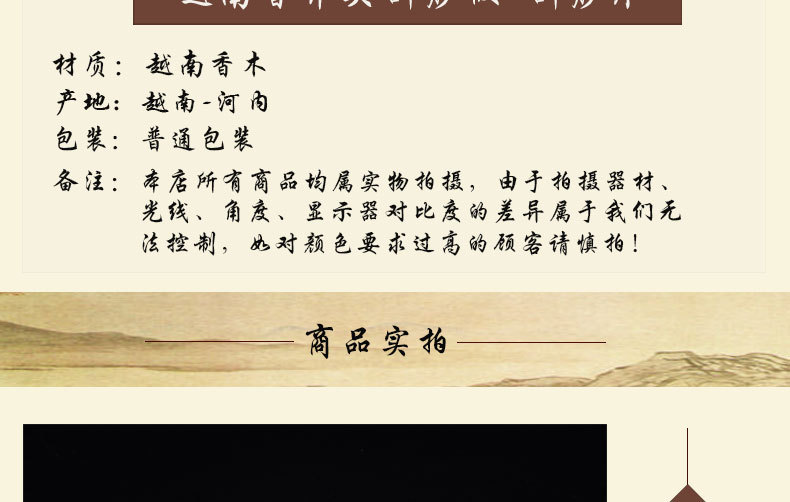 材质：越南香木
产地：越南-河内
包装：普通包装
备注：本店所有商品均属实物拍摄，由于拍摄器材、
光线、角度、显示器对比度的差异属于我们无
法控制，如对颜色要求过高的顾客请慎拍！
商品实拍